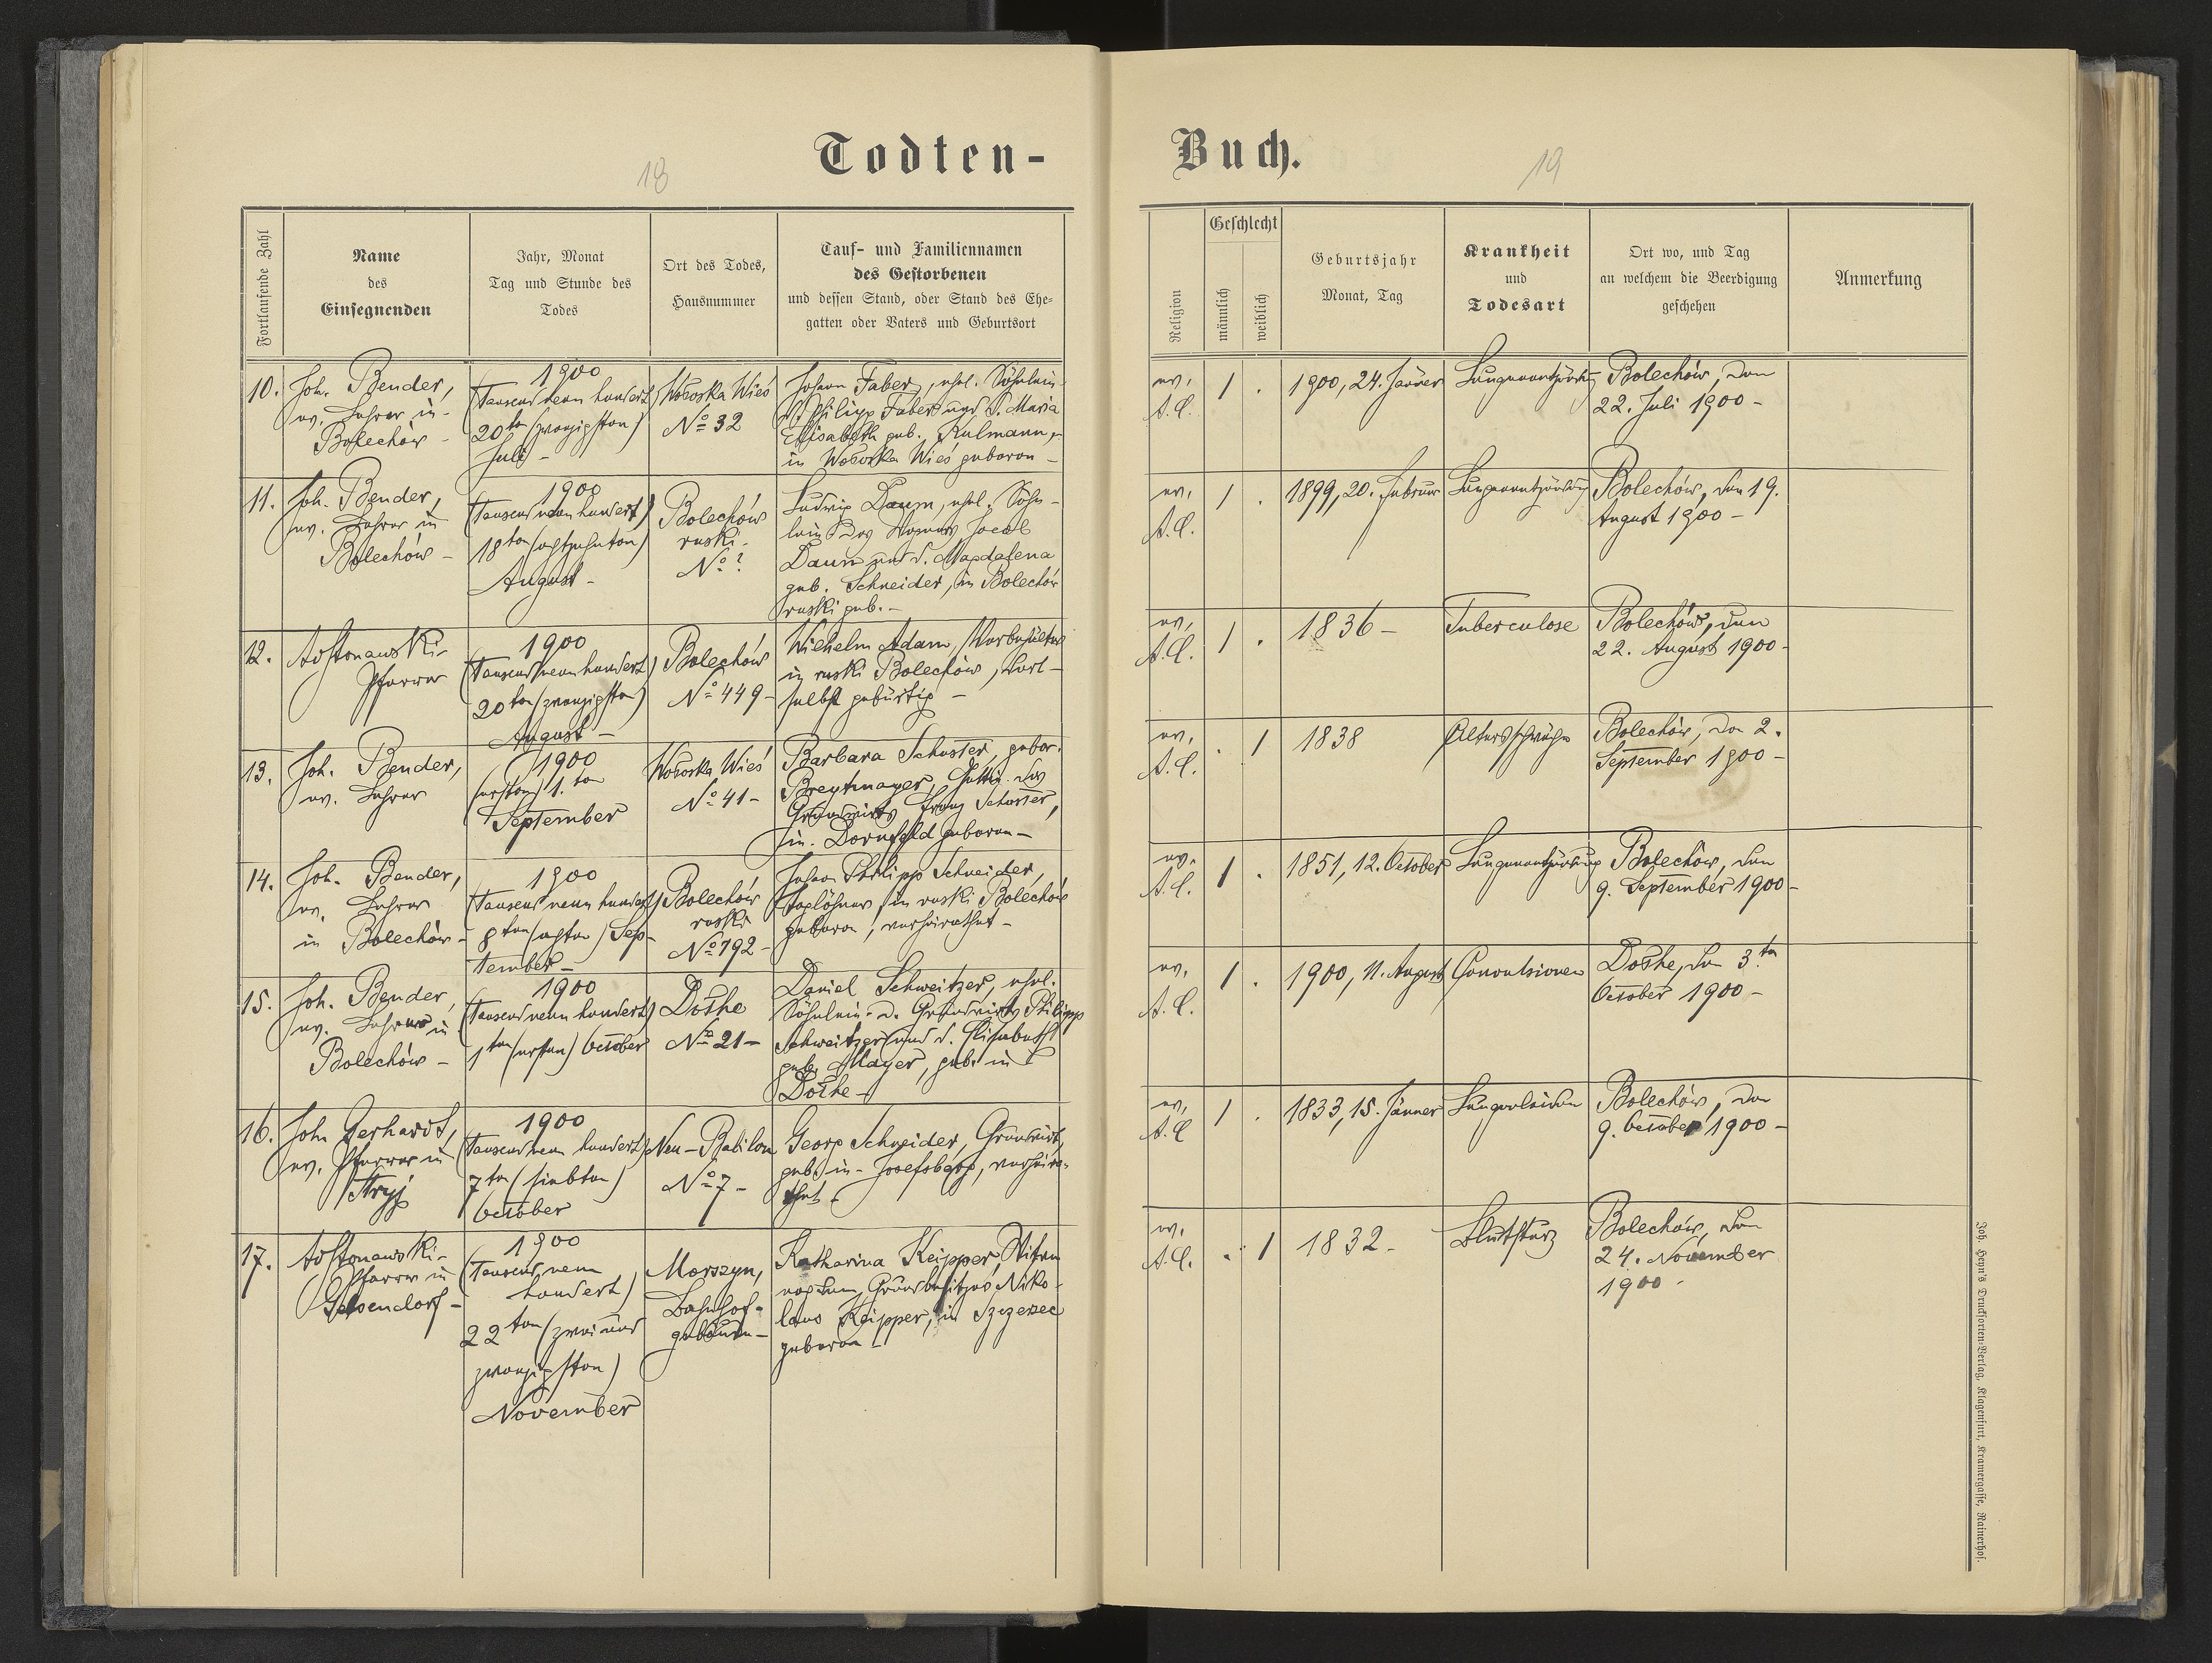 Todten-
18
Fortlaufende Zahl
Name
des
Einsegnenden
Jahr, Monat
Tag und Stunde des
Todes
Ort des Todes,
Hausnummer
Tauf- und Familiennamen
des Gestorbenen
und dessen Stand, oder Stand des Ehe-
gatten oder Vaters und Geburtsort
10.
Joh. Bender,
ev. Lehrer in
Bolechów -
1900
(Tausend neun hundert)
20ten (zwanzigsten)
Juli -
Wołoska Wieś
No 32
Johann Faber, ehel. Söhnlein
d. Philipp Faber und d. Maria
Elisabeth geb. Kulmann,
in Wołoska Wieś geboren -
11.
Joh. Bender,
ev. Lehrer in
Bolechów -
1900
(Tausend neun hundert)
18ten (achtzehnten)
August -
Bolechów
ruski.
No ?
Ludwig Daum, ehel. Söhn-
lein des Jacob
Daum und d. Magdalena
geb. Schneider, in Bolechów
ruski geb. -
12.
Pfarrer
1900
(Tausend neun hundert)
20ten (zwanzigsten)
August -
Bolechów
No 449 -
Wilhelm Adam,
in ruski Bolechów, dort-
selbst gebürtig -
13.
Joh. Bender,
ev. Lehrer
1900
(ersten) 1.ten
September
Wołoska Wieś
No 41 -
Barbara Schuster, gebor.
Breytmayer, Gattin des
Grundwirts Franz Schuster,
in Dornfeld geboren -
14.
Joh. Bender,
ev. Lehrer
in Bolechów -
1900
(Tausend neun hundert)
8ten (achten) Sep-
tember -
Bolechów
ruski
No 792 -
Johann Philipp Schneider,
Taglöhner, in ruski Bolechów
geboren, verheirathet -
15.
Joh. Bender,
ev. Lehrer in
Bolechów -
1900
(Tausend neun hundert)
1ten (ersten) October
Dołhe
No 21 -
Daniel Schweitzer, ehel.
Söhnlein d. Grundwirts Philipp
Schweitzer und d. Elisabeth
geb. Mayer, geb. in
Dołhe -
16.
Joh. Gerhardt,
ev. Pfarrer in
Stryj
1900
(Tausend neun hundert)
7ten (siebten)
October
Neu-Babilon
No 7 -
Georg Schneider, Grundwirt,
geb. in Josefsberg, verheira-
thet -
17.
Pfarrer in
Gelsendorf -
1900
(Tausend neun
hundert)
22ten (zwei und
zwanzigsten)
November
Morszyn,
Bahnhof-
gebäude -
Katharina Keipper, Witwe
nach dem Grundbesitzer Niko-
laus Keipper, in Szczerzec
geboren -
Buch.
19
Religion
Geschlecht
männlich
weiblich
Geburtsjahr
Monat, Tag
Krankheit
und
Todesart
Ort wo, und Tag
an welchem die Beerdigung
geschehen
Anmerkung
ev.
A.C.
1
.
1900, 24. Jänner
Lungenentzündung
Bolechów, den
22. Juli 1900 -
ev.
A.C.
1
.
1899, 20. Februar
Lungenentzündung
Bolechów, den 19.
August 1900 -
ev.
A.C.
1
.
1836 -
Tuberculose
Bolechów, den
22. August 1900 -
ev.
A.C.
.
1
1838
Altersschwäche
Bolechów, den 2.
September 1900 -
ev.
A.C.
1
.
1851, 12. October
Lungenentzündung
Bolechów, den
9. September 1900 -
ev.
A.C.
1
.
1900, 11. August
Convulsionen
Dołhe, den 3ten
October 1900 -
ev.
A.C.
1
.
1833, 15. Jänner
Lungenleiden
Bolechów, den
9. October 1900 -
ev.
A.C.
.
1
1832 -
Blutsturz
Bolechów, den
24. November
1900 -
Joh. Heyn's Drucksorten-Verlag, Klagenfurt, Kramergasse, Rainerhof.